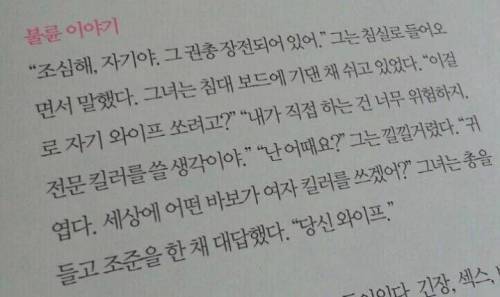 불륜 이야기
“조심해, 자기야. 그 권총 장전되어 있어.” 그는 침실로 들어오
면서 말했다. 그녀는 침대 보드에 기댄 채 쉬고 있었다. “이걸
로 자기 와이프 쏘려고?” “내가 직접 하는 건 너무 위험하지,
전문 킬러를 쓸 생각이야.” “난 어때요?” 그는 낄낄거렸다. “귀
엽다. 세상에 어떤 바보가 여자 킬러를 쓰겠어?” 그녀는 총을
들고 조준을 한 채 대답했다. “당신 와이프.”
긴장, 섹스,